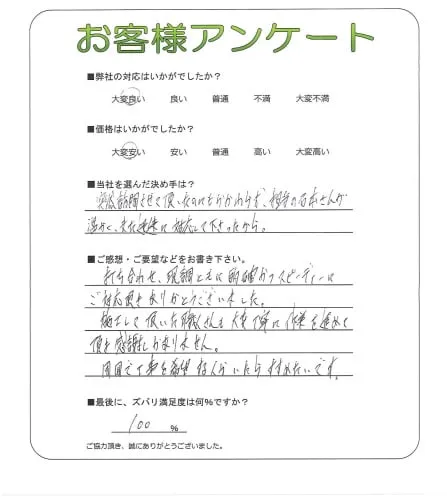 お客様アンケート
■弊社の対応はいかがでしたか?
大変良い 良い 普通 不満 大変不満
■価格はいかがでしたか?
大変安い 安い 普通 高い 大変高い
■当社を選んだ決め手は?
突然訪問させて頂いたのにもかかわらず、担当の石本さんが
温かく、また迅速に対応して下さったから。
■ご感想・ご要望などをお書き下さい。
打ち合わせ、現調ともに的確かつスピーディーに
ご対応頂きありがとうございました。
施工して頂いた職人さんも大変丁寧に作業を進めて
頂き感謝しかありません。
周囲で工事を希望する人がいたらすすめたいです。
■最後に、ズバリ満足度は何%ですか?
100 %
ご協力頂き、誠にありがとうございました。